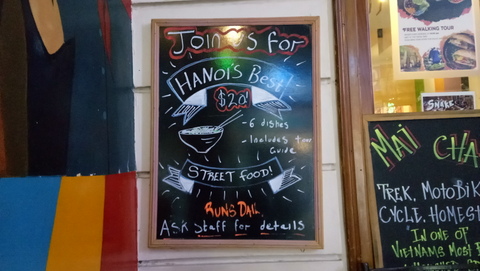 Join us for
HANOI'S BEST!
$20!
- 6 dishes
- Includes tour
Guide
STREET FOOD!
RUNS
Ask Staff for details
FREE WALKING TOUR
SNAKE
MAI
TREK, MOTOBIK
CYCLE, HOMEST
"IN ONE OF
VIETNAMS MOST